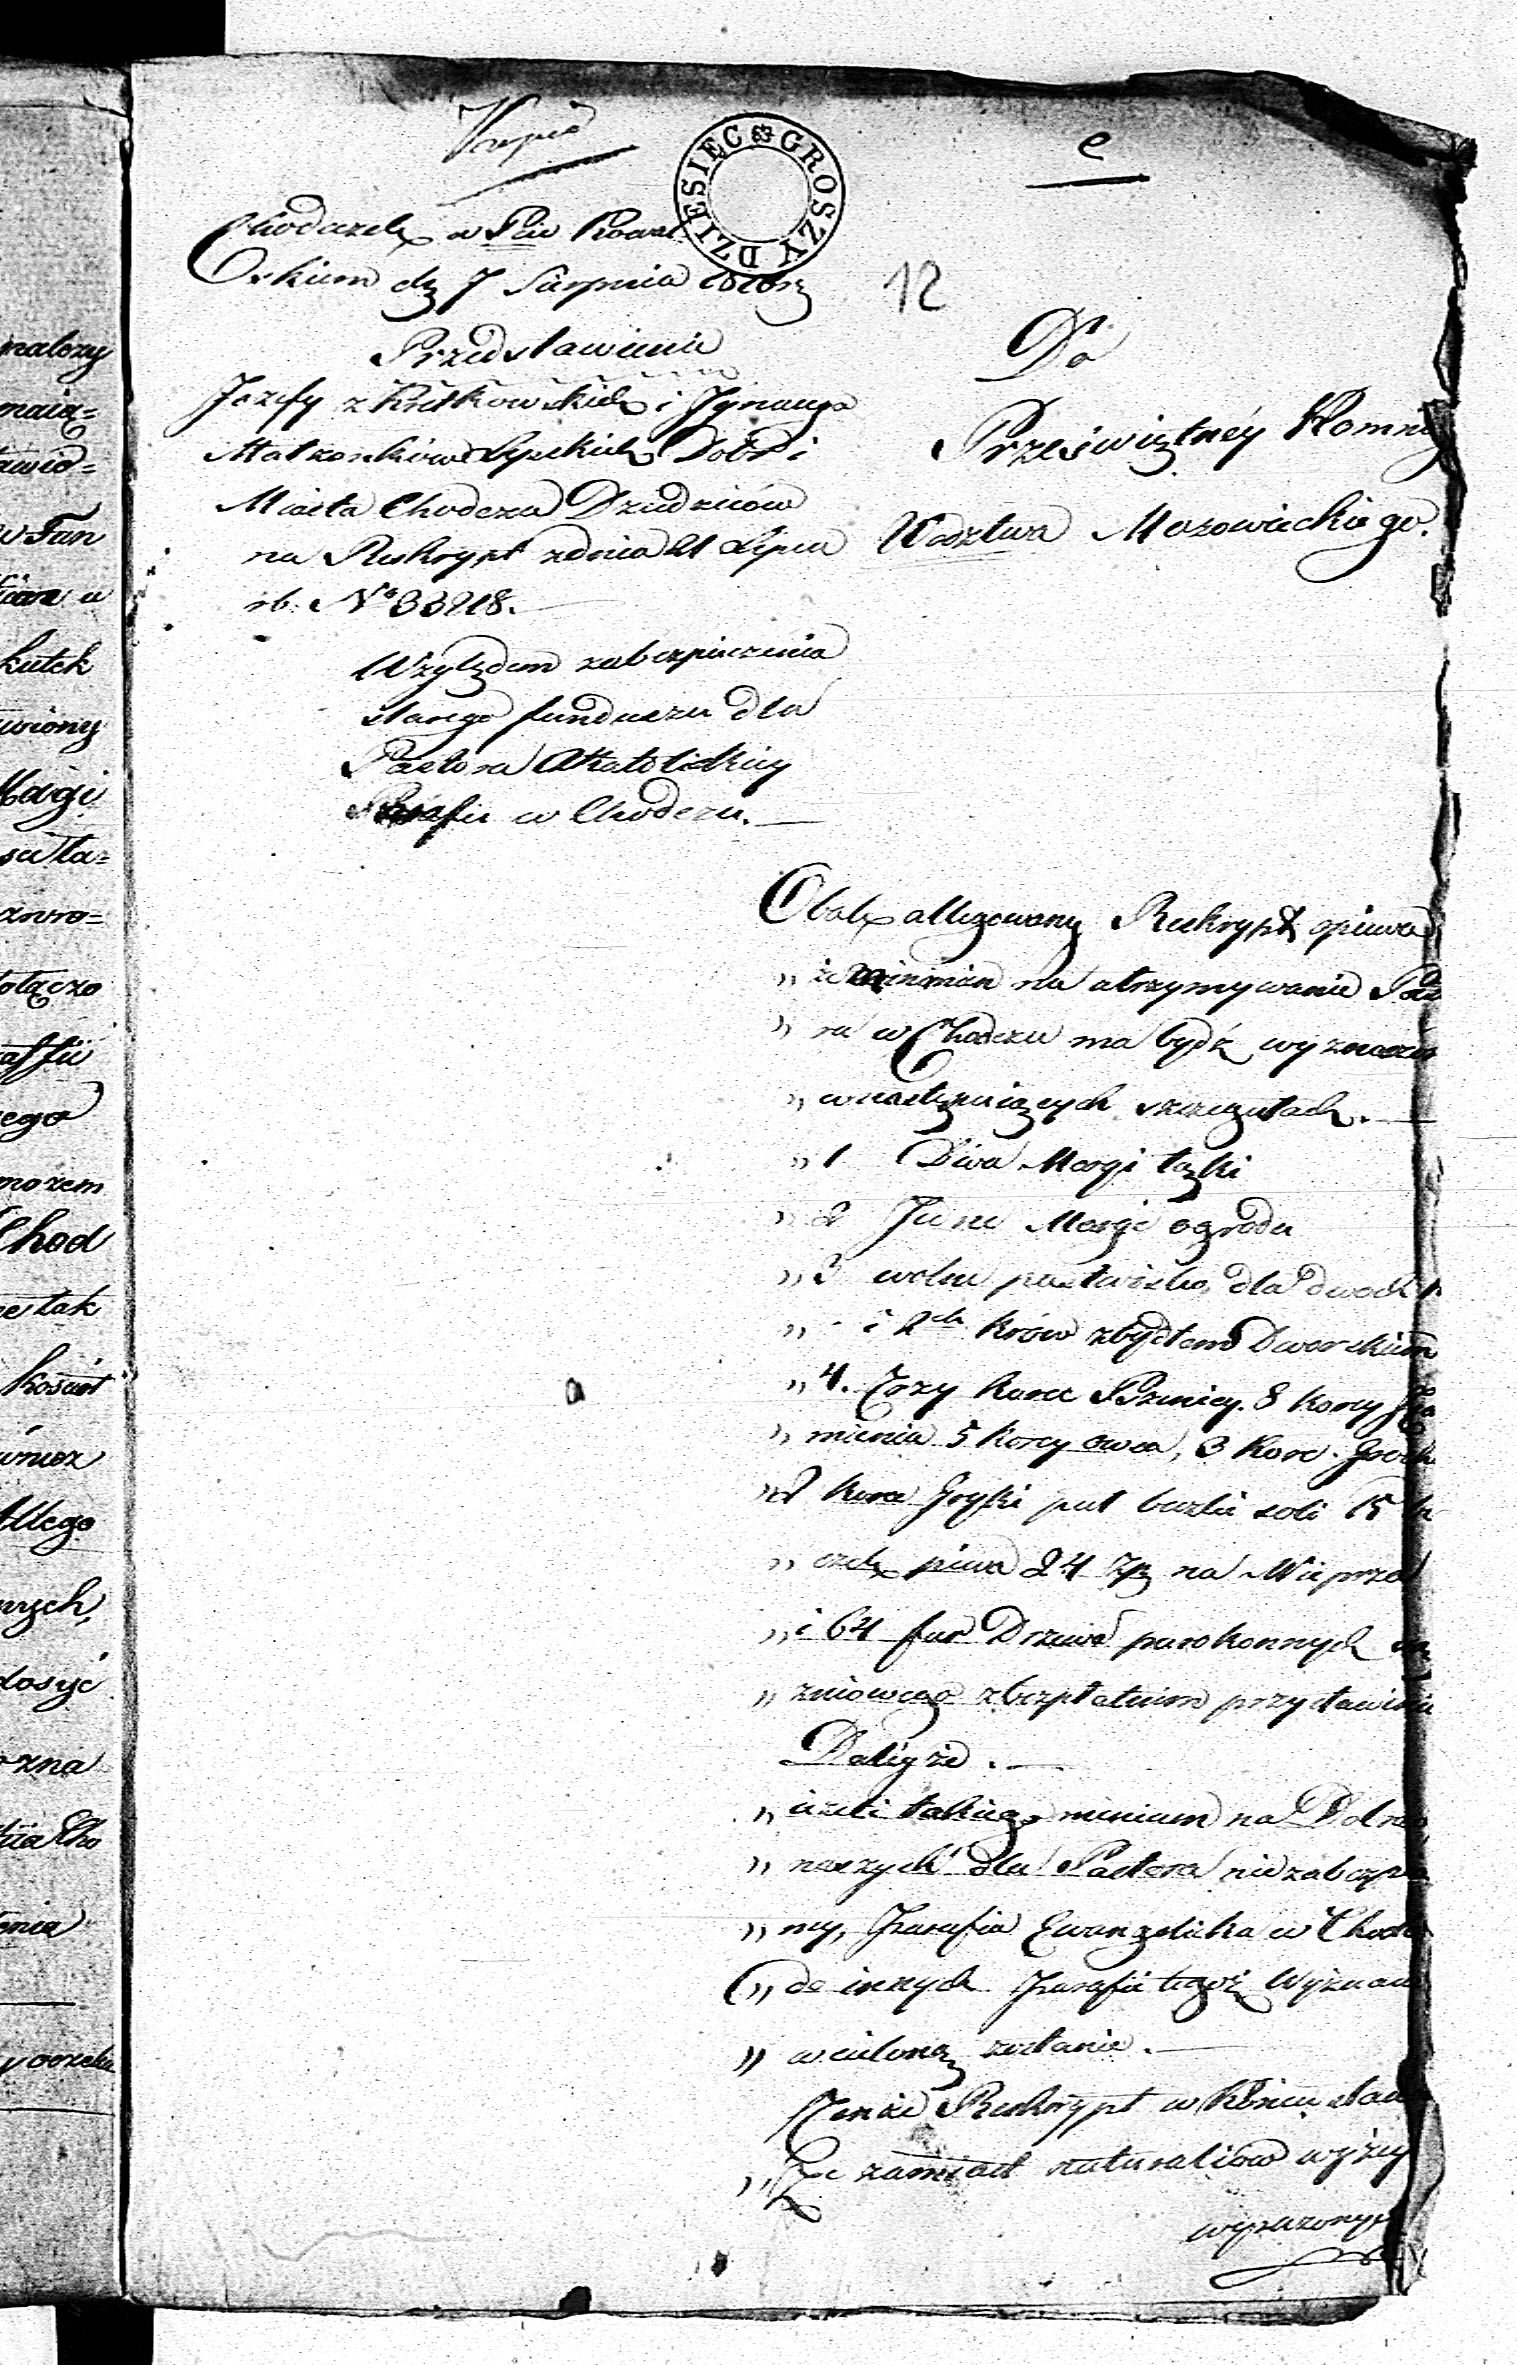 Kopia
DZIESIĘC GROSZY
e
Chodecz w Pcie Kowal
Oskiem d. 7 Sierpnia
12
Przedstawienie
Jozefy z Kretkowskich i Ignacego
Małzonków Lypskich Dobr i
Miasta Chodcza Dziedziców
na Reskrypt z dnia 21 Lipca
rb. No 33218.
Względem zabezpieczenia
stałego funduszu dla
Pastora Akatolickiey
Parafii w Chodczu.
Do
Przeświętnéy Kommi
Wodztwa Mazowieckiego.
Obok allegowany Reskrypt opiewa
„ że na utrzymywanie Pas
„ ra w Chodczu ma bydź wyznaczo
„ w następuiących szczegułach.
„ 1 Dwa Morgi łąki
„ 2 Jeden Morge ogrodu
„ 3 wolne pastwisko dla dwoch
„ i 2ch krów z bydłem Dworskiem
„ 4. Trzy korce Pszenicy. 8 korcy Ję
„ mienia 5 korcy owsa, 3 Korc. Groch
„ 2 korce Gryki puł beczki soli 15 be
„ czek piwa 24 zp na Wieprza
„ i 64 fur Drzewa parokonnych
„ zniowego z bezpłatnem przystawieniem
Daley że.
„ ieżeli takiego minium na Dobrach
„ naszych dla Pastora nie zabezpie
„ my, Parafia Ewangelicka w Chode
„ do innych Parafii tegoż Wyznani
„ wcieloną zostanie.
Tenże Reskrypt w końcu stan
„ Ze zamiast naturaliów wyżey
wyrażonych
nalezy
maią=
awid=
w Fun
kutek
wiony
Magi
su ta=
zwro=
ołączo
affii
ego
możem
Chod
es tak
kościoł
wniez
Allego
nych,
dosyć
zna
Cho
enia